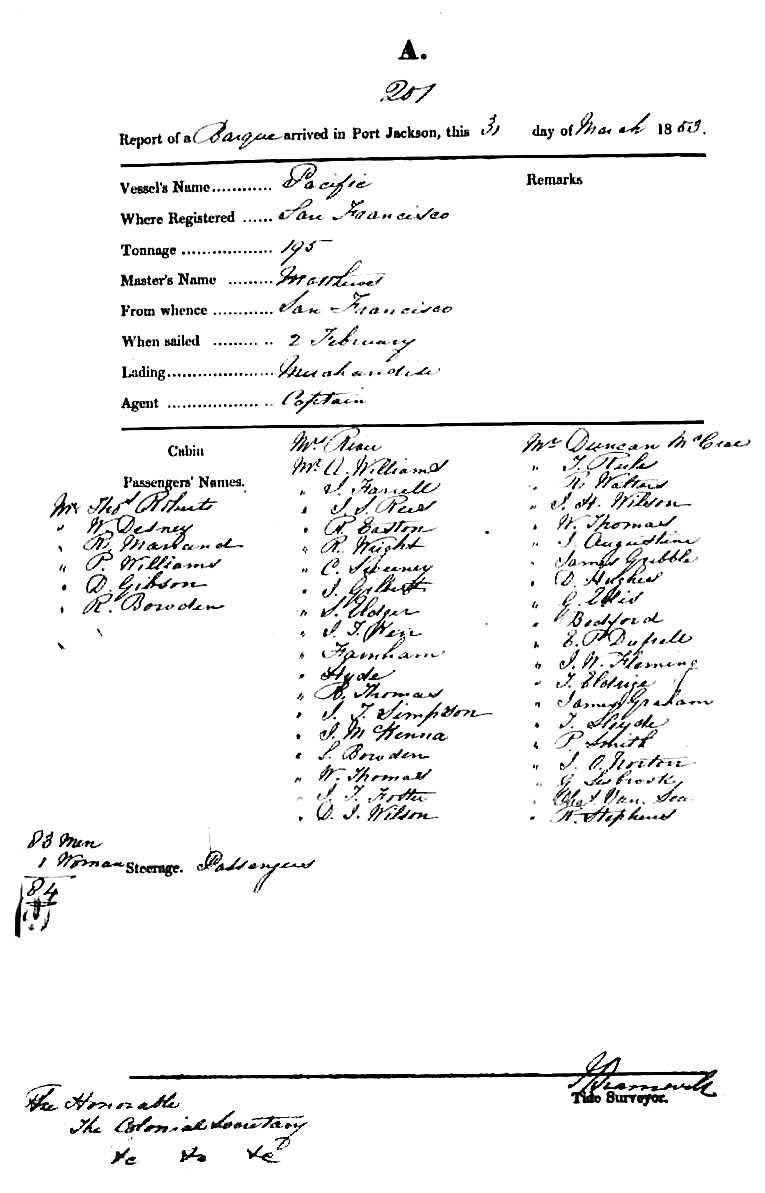 A.
201
Report of a Barque arrived in Port Jackson, this 31 day of March 1853.
Vessel's Name............ Pacific
Remarks
Where Registered ...... San Francisco
Tonnage .................. 195
Master's Name ......... Matthews
From whence ............ San Francisco
When sailed ......... .. 2 February
Lading..................... Merchandise
Agent .................. .. Captain
Cabin
Passengers' Names.
Mr Thos Roberts
" W. Desney
" R. Marland
" P. Williams
" D. Gibson
" R. Bowden
Mrs
Mr A. Williams
" J. Farrell
" J. S. Rees
" R. Easton
" R. Wright
" C. Sweeney
" J. Gilbert
" S. Eldger
" J. T. Weir
" Farnham
" Hyde
" R. Thomas
" J. T. Simpson
" J. McKenna
" S. Bowden
" W. Thomas
" J. T. Foster
" D. J. Wilson
Mr Duncan McCrae
" T.
" R. Watters
" J. H. Wilson
" W. Thomas
" J. Augustine
" James Gribble
" D. Hughes
" G. Ellis
" Bedford
" E. P.
" J. W. Fleming
" T. Eldrige
" James Graham
" T. Hyde
" P. Smith
" J. O. Norton
" G.
" Chas Van
" R. Stephens
83 Men
1 Woman
84
Steerage. Passengers
Tide Surveyor.
The Honorable
The Colonial Secretary
&c &c &c